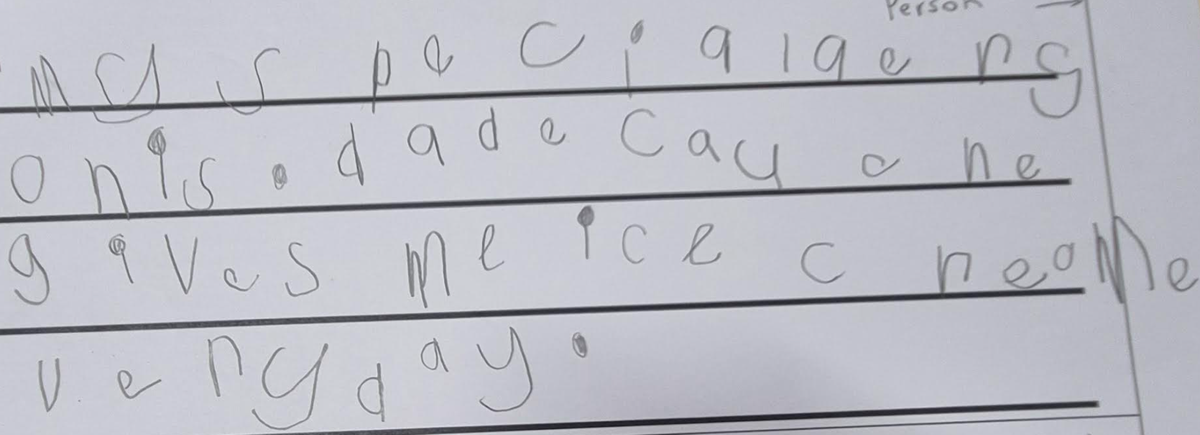 Person
my specialgerng
onis. dadecayone
gives me ice cneome
verngday.